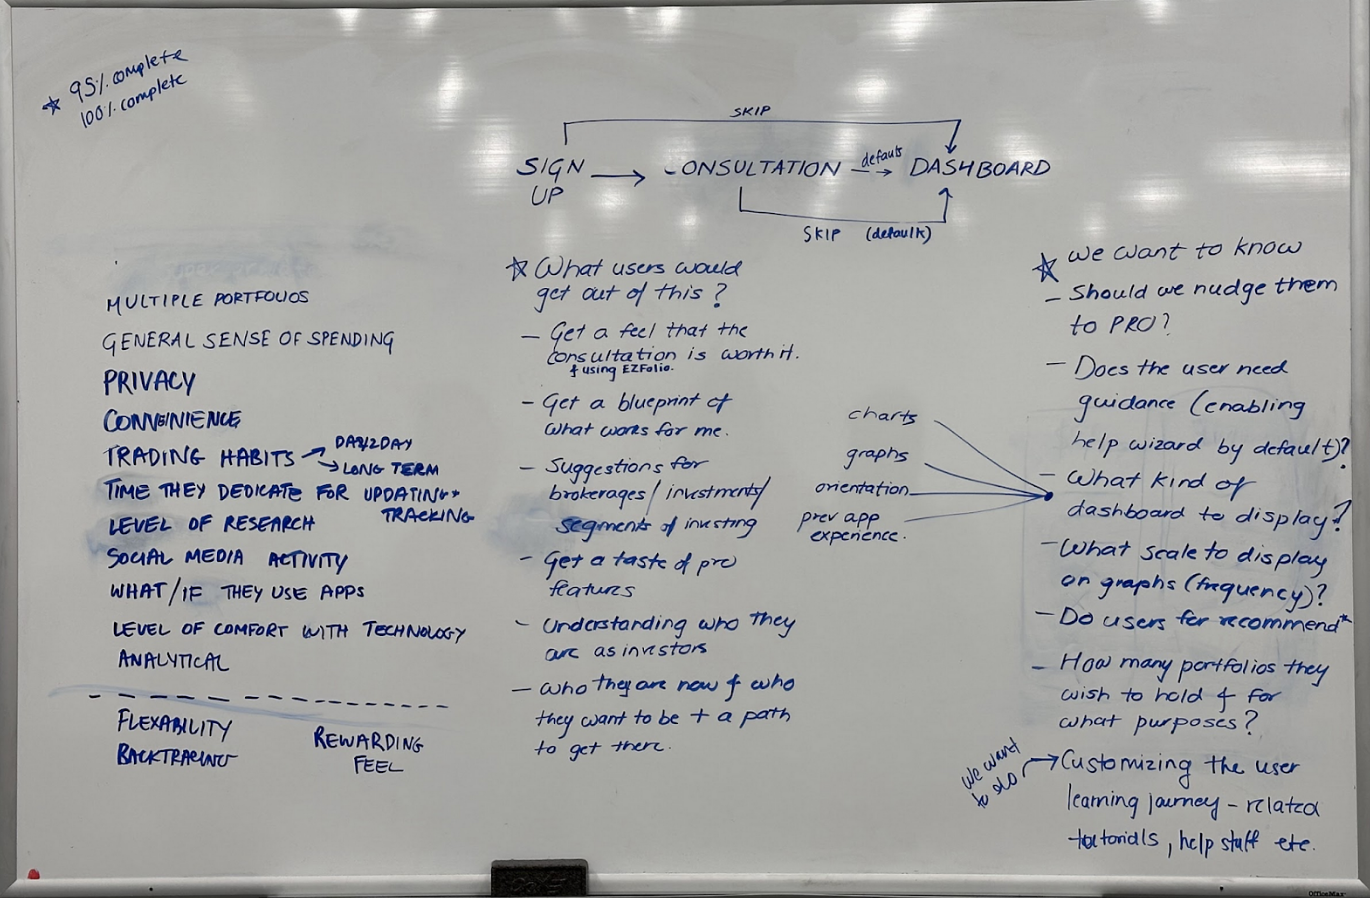 95% complete
100% complete
SKIP
SIGN UP
CONSULTATION
defaults
DASHBOARD
SKIP (default)
MULTIPLE PORTFOLIOS
GENERAL SENSE OF SPENDING
PRIVACY
CONVENIENCE
TRADING HABITS
DAY2DAY
LONG TERM
TIME THEY DEDICATE FOR UPDATING +
TRACKING
LEVEL OF RESEARCH
SOCIAL MEDIA ACTIVITY
WHAT/IF THEY USE APPS
LEVEL OF COMFORT WITH TECHNOLOGY
ANALYTICAL
FLEXABILITY
BACKTRACING
REWARDING
FEEL
What users would
get out of this?
- Get a feel that the
consultation is worth it.
& using EZFolio.
- Get a blueprint of
what works for me.
- Suggestions for
brokerages/investments/
segments of investing
- Get a taste of pro
features
- Understanding who they
are as investors
- Who they are now & who
they want to be + a path
to get there.
charts
graphs
orientation
prev app
experience.
We want to know
- Should we nudge them
to PRO?
- Does the user need
guidance (enabling
help wizard by default)?
- What kind of
dashboard to display?
- What scale to display
on graphs (frequency)?
- Do users for recommend*
- How many portfolios they
wish to hold & for
what purposes?
we want
to do
Customizing the user
learning journey - related
tutorials, help stuff etc.
OfficeMax